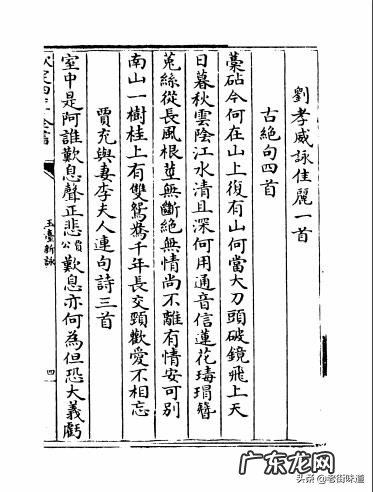 劉孝威詠佳麗一首
古絶句四首
藁砧今何在山上復有山何當大刀頭破鏡飛上天
日暮秋雲陰江水清且深何用通音信蓮花瑇瑁簪
莵絲從長風根莖無斷絶無情尚不離有情安可别
南山一樹桂上有雙鴛鴦千年長交頸歡愛不相忘
賈充與妻李夫人連句詩三首
室中是阿誰歎息聲正悲賈公歎息亦何為但恐大義虧
玉臺新詠
四
广东龙网
头条@老街味道